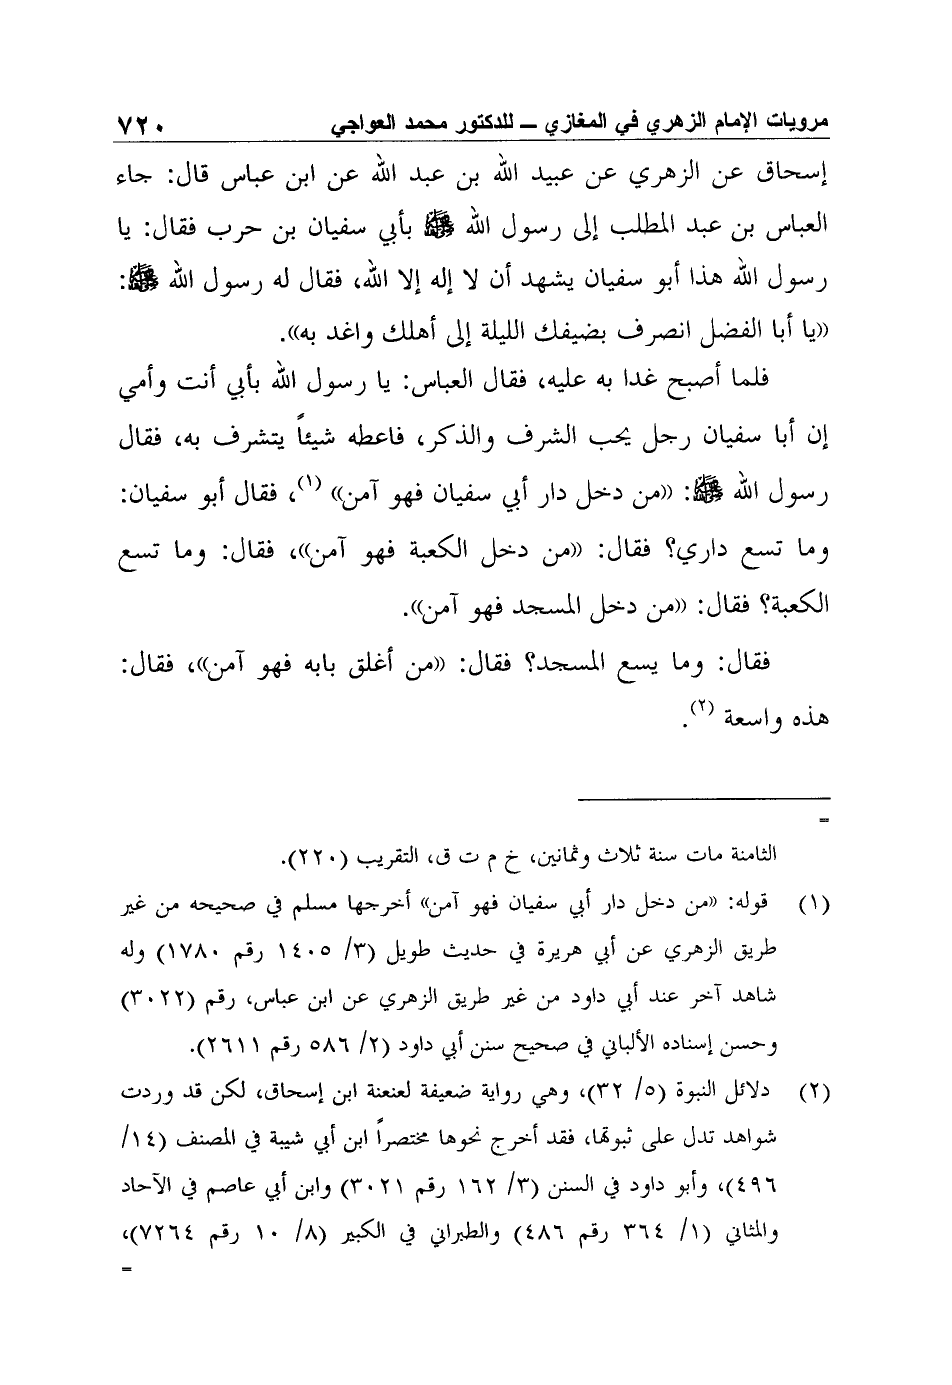 مرويات الإمام الزهري في المغازي ــ للدكتور محمد العواجي ٧٢٠
إسحاق عن الزهري عن عبيد الله بن عبد الله عن ابن عباس قال: جاء
العباس بن عبد المطلب إلى رسول الله ﷺ بأبي سفيان بن حرب فقال: يا
رسول الله هذا أبو سفيان يشهد أن لا إله إلا الله، فقال له رسول الله ﷺ:
«يا أبا الفضل انصرف بضيفك الليلة إلى أهلك واغد به».
فلما أصبح غدا به عليه، فقال العباس: يا رسول الله بأبي أنت وأمي
إن أبا سفيان رجل يحب الشرف والذكر، فاعطه شيئاً يتشرف به، فقال
رسول الله ﷺ: «من دخل دار أبي سفيان فهو آمن» (١)، فقال أبو سفيان:
وما تسع داري؟ فقال: «من دخل الكعبة فهو آمن»، فقال: وما تسع
الكعبة؟ فقال: «من دخل المسجد فهو آمن».
فقال: وما يسع المسجد؟ فقال: «من أغلق بابه فهو آمن»، فقال:
هذه واسعة (٢).
=
الثامنة مات سنة ثلاث وثمانين، خ م ت ق، التقريب (٢٢٠).
(١) قوله: «من دخل دار أبي سفيان فهو آمن» أخرجها مسلم في صحيحه من غير
طريق الزهري عن أبي هريرة في حديث طويل (٣/ ١٤٠٥ رقم ١٧٨٠) وله
شاهد آخر عند أبي داود من غير طريق الزهري عن ابن عباس، رقم (٣٠٢٢)
وحسن إسناده الألباني في صحيح سنن أبي داود (٢/ ٥٨٦ رقم ٢٦١١).
(٢) دلائل النبوة (٥/ ٣٢)، وهي رواية ضعيفة لعنعنة ابن إسحاق، لكن قد وردت
شواهد تدل على ثبوتها، فقد أخرج نحوها مختصراً ابن أبي شيبة في المصنف (١٤/
٤٩٦)، وأبو داود في السنن (٣/ ١٦٢ رقم ٣٠٢١) وابن أبي عاصم في الآحاد
والمثاني (١/ ٣٦٤ رقم ٤٨٦) والطبراني في الكبير (٨/ ١٠ رقم ٧٢٦٤)،
=